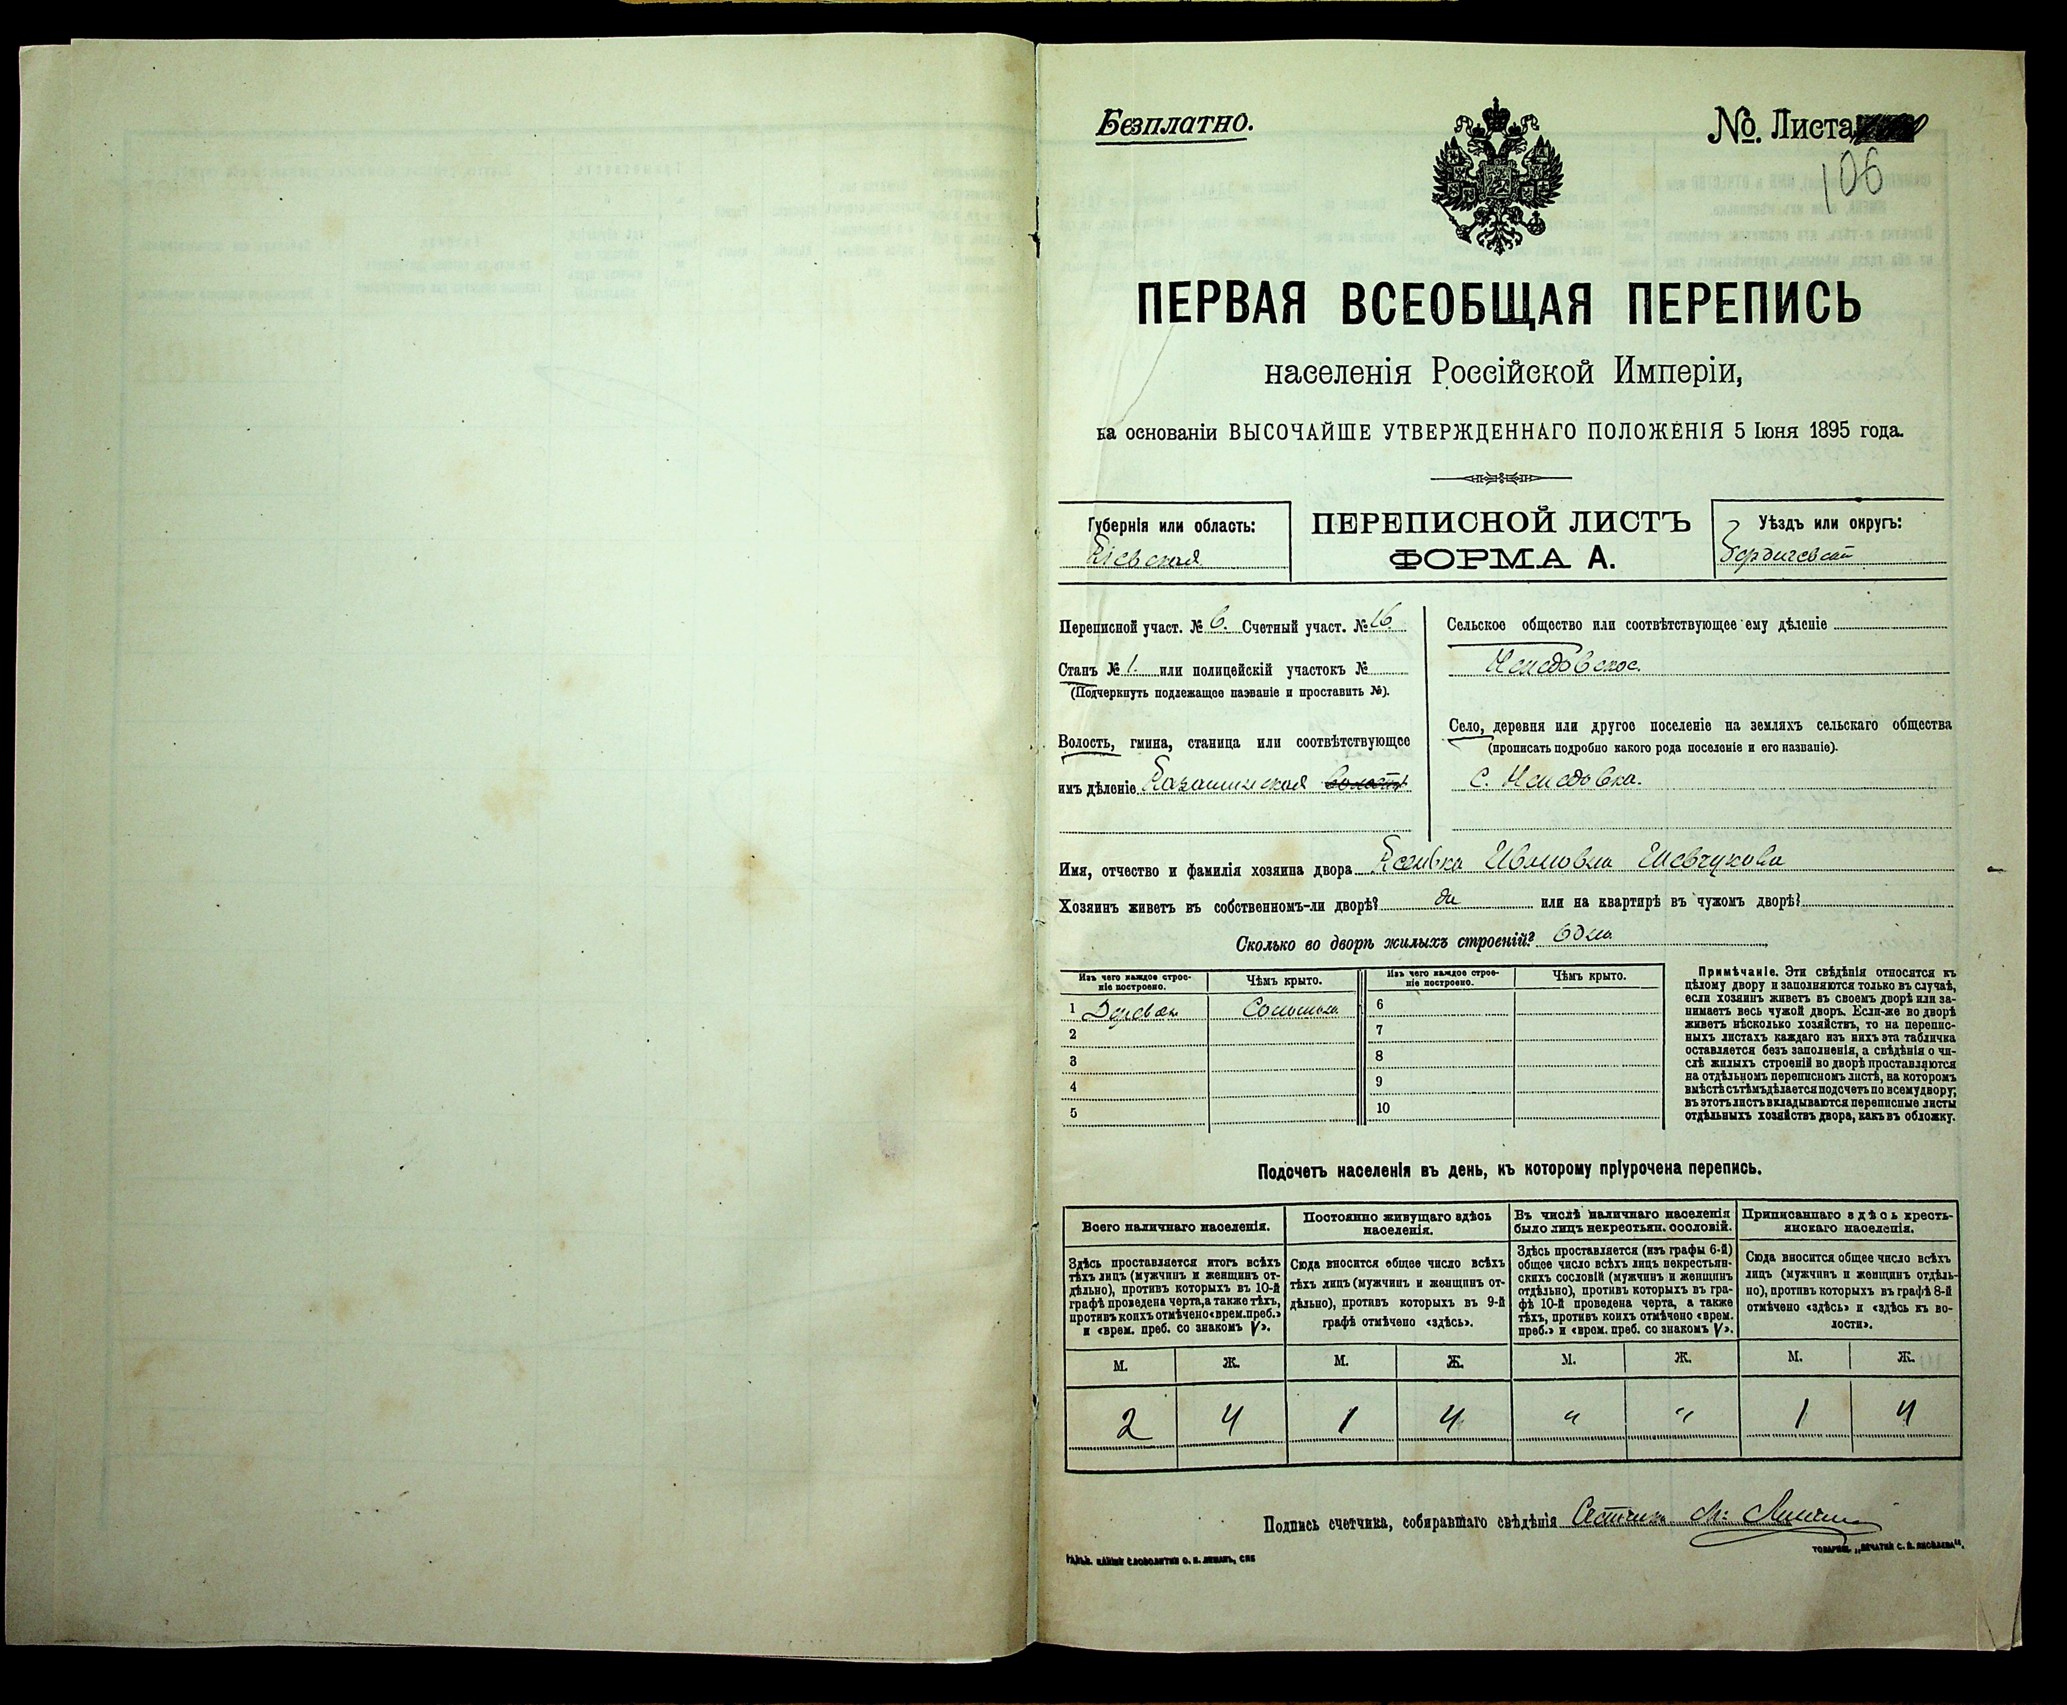 Безплатно.
№. Листа
106
ПЕРВАЯ ВСЕОБЩАЯ ПЕРЕПИСЬ
населенія Россійской Имперіи,
на основаніи ВЫСОЧАЙШЕ УТВЕРЖДЕННАГО ПОЛОЖЕНІЯ 5 Іюня 1895 года.
Губернія или область:
Кіевская
ПЕРЕПИСНОЙ ЛИСТЪ
ФОРМА А.
Уѣздъ или округъ:
Бердичевскій
Переписной участ. № 6. Счетный участ. № 16
Станъ № 1. или полицейскій участокъ №
(Подчеркнуть подлежащее названіе и проставить №).
Волость, гмина, станица или соотвѣтствующее
имъ дѣленіе
Сельское общество или соотвѣтствующее ему дѣленіе
Село, деревня или другое поселеніе на земляхъ сельскаго общества
(прописать подробно какого рода поселеніе и его названіе).
с.
Имя, отчество и фамилія хозяина двора Ивановна Шевчукова
Хозяинъ живетъ въ собственномъ-ли дворѣ? да или на квартирѣ въ чужомъ дворѣ?
Сколько во дворѣ жилыхъ строеній?
Изъ чего каждое строе-
ніе построено.
Чѣмъ крыто.
Изъ чего каждое строе-
ніе построено.
Чѣмъ крыто.
1 Соломою
2
3
4
5
6
7
8
9
10
Примѣчаніе. Эти свѣдѣнія относятся къ
цѣлому двору и заполняются только въ случаѣ,
если хозяинъ живетъ въ своемъ дворѣ или за-
нимаетъ весь чужой дворъ. Если-же во дворѣ
живетъ нѣсколько хозяйствъ, то на перепис-
ныхъ листахъ каждаго изъ нихъ эта табличка
оставляется безъ заполненія, а свѣдѣнія о чи-
слѣ жилыхъ строеній во дворѣ проставляются
на отдѣльномъ переписномъ листѣ, на которомъ
вмѣстѣ съ тѣмъ дѣлается подсчетъ по всему двору;
въ этотъ листъ вкладываются переписные листы
отдѣльныхъ хозяйствъ двора, какъ въ обложку.
Подсчетъ населенія въ день, къ которому пріурочена перепись.
Всего наличнаго населенія.
Здѣсь проставляется итогъ всѣхъ
тѣхъ лицъ (мужчинъ и женщинъ от-
дѣльно), противъ которыхъ въ 10-й
графѣ проведена черта, а также тѣхъ,
противъ коихъ отмѣчено «врем. преб.»
и «врем. преб. со знакомъ V».
Постоянно живущаго здѣсь
населенія.
Сюда вносится общее число всѣхъ
тѣхъ лицъ (мужчинъ и женщинъ от-
дѣльно), противъ которыхъ въ 9-й
графѣ отмѣчено «здѣсь».
Въ числѣ наличнаго населенія
было лицъ некрестьян. сословій.
Здѣсь проставляется (изъ графы 6-й)
общее число всѣхъ лицъ некрестьян-
скихъ сословій (мужчинъ и женщинъ
отдѣльно), противъ которыхъ въ гра-
фѣ 10-й проведена черта, а также
тѣхъ, противъ коихъ отмѣчено «врем.
преб.» и «врем. преб. со знакомъ V».
Приписаннаго здѣсь кресть-
янскаго населенія.
Сюда вносится общее число всѣхъ
лицъ (мужчинъ и женщинъ отдѣль-
но), противъ которыхъ въ графѣ 8-й
отмѣчено «здѣсь» и «здѣсь къ во-
лости».
М. Ж. М. Ж. М. Ж. М. Ж.
2 4 1 4 " " 1 4
Подпись счетчика, собиравшаго свѣдѣнія